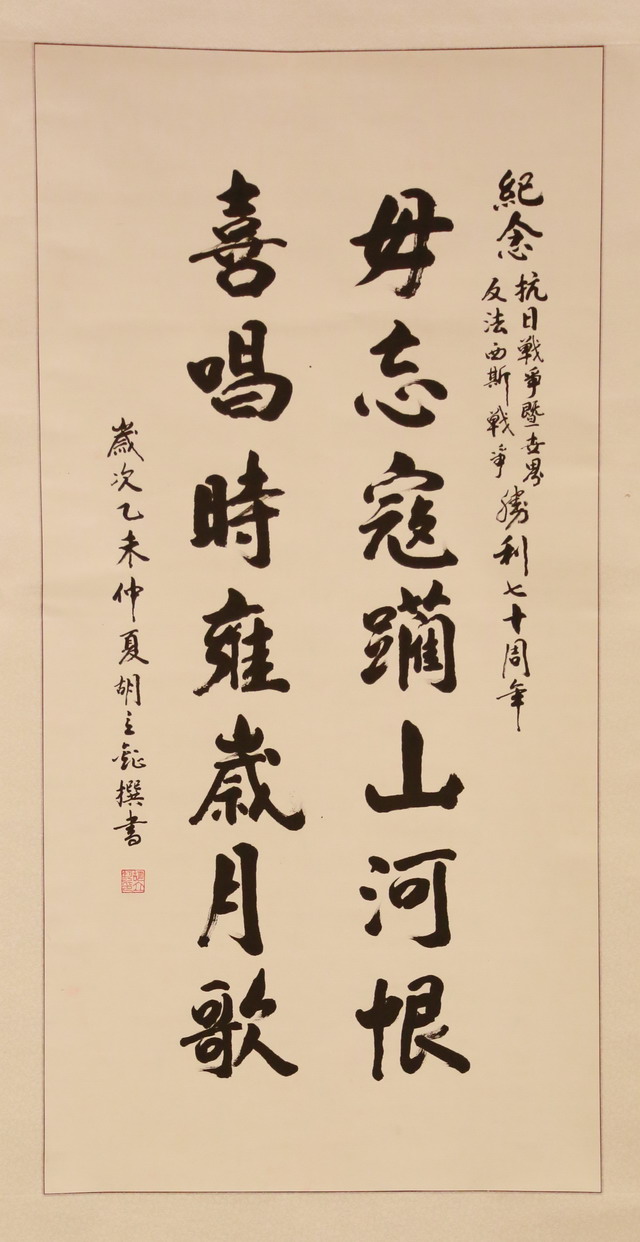 紀念抗日戰爭暨世界
反法西斯戰爭勝利七十周年
毋忘寇躪山河恨
喜唱時雍歲月歌
歲次乙未仲夏胡立撰書